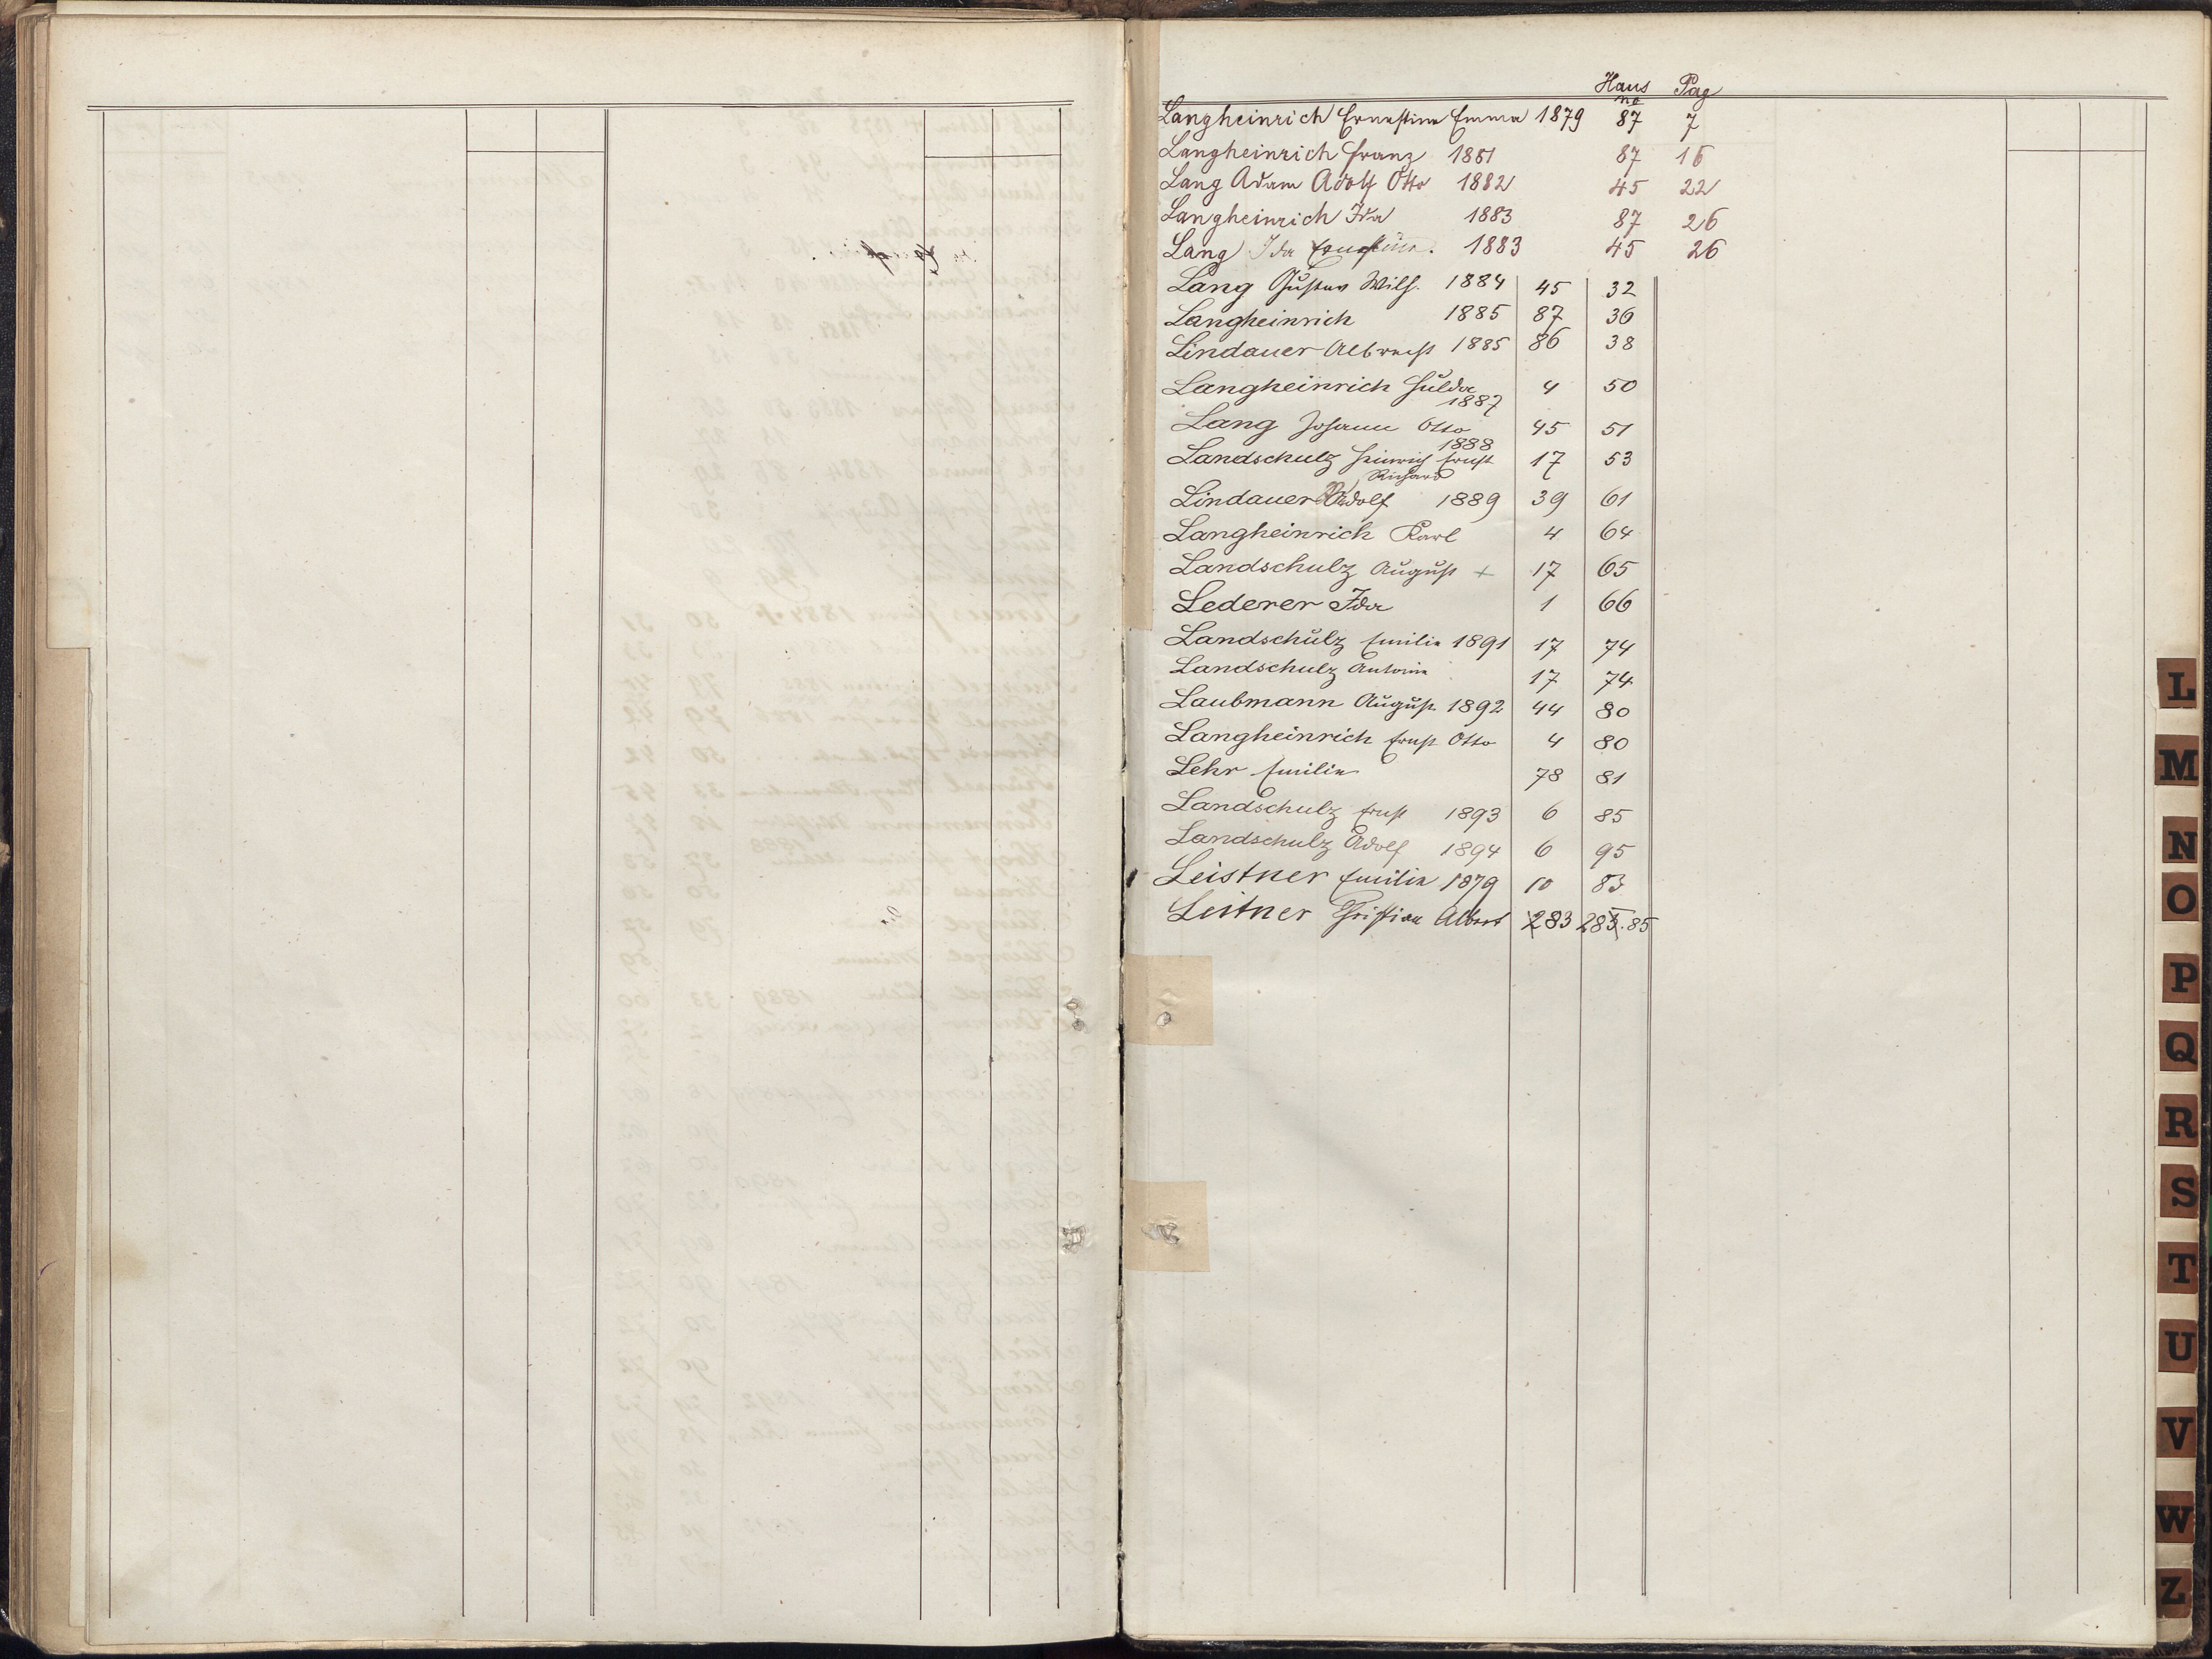 Haus Pag
no
Langheinrich Ernestine Emma 1879 87 7
Langheinrich Franz 1881 87 16
Lang Adam Adolf Otto 1882 45 22
Langheinrich Ida 1883 87 26
Lang Ida Ernestine. 1883 45 26
Lang Gustav Wilh. 1884 45 32
Langheinrich 1885 87 36
Lindauer Albrecht 1885 86 38
Langheinrich Hulda 4 50
1887
Lang Johann Otto 45 51
1888
Landschulz Heinrich Ernst 17 53
Richard
Lindauer Adolf 1889 39 61
Langheinrich Karl 4 64
Landschulz August + 17 65
Lederer Ida 1 66
Landschulz Emilie 1891 17 74
Landschulz Antonie 17 74
Laubmann August 1892 44 80
Langheinrich Ernst Otto 4 80
Lehr Emilie 78 81
Landschulz Ernst 1893 6 85
Landschulz Adolf 1894 6 95
Leistner Emilie 1879 10 83
Leitner Christian Albert 283 285.85
L
M
N
O
P
Q
R
S
T
U
V
W
Z